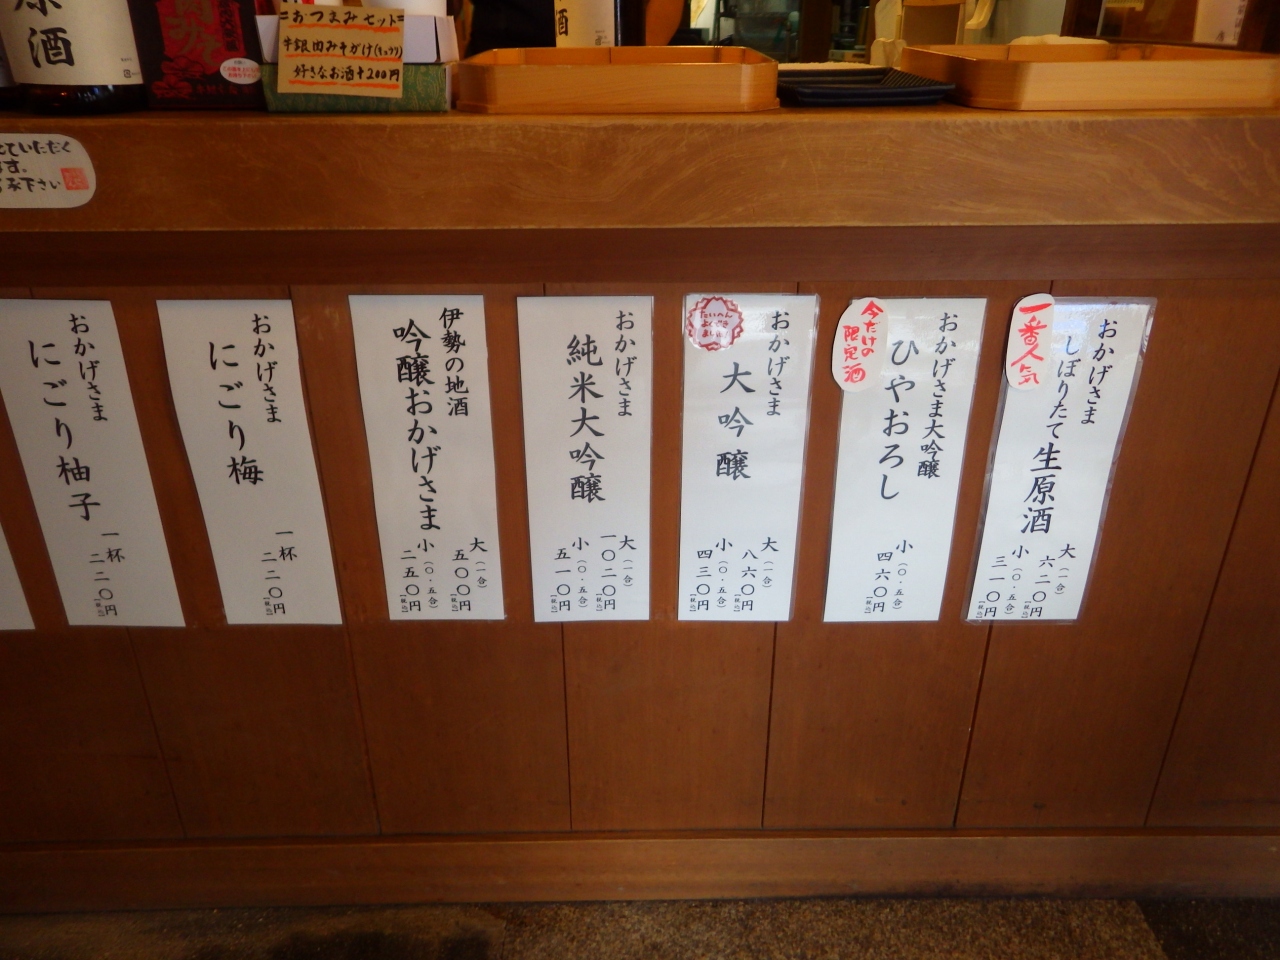 原酒
=おつまみセット=
牛銀肉みそがけ(キュウリ)
好きなお酒+200円
ていただく
ます。
下さい
一番人気
おかげさま
しぼりたて生原酒
大(一合)
六二〇円[税込]
小(〇・五合)
三一〇円[税込]
今だけの
限定酒
おかげさま大吟醸
ひやおろし
小(〇・五合)
四六〇円[税込]
おかげさま
大吟醸
大(一合)
八六〇円[税込]
小(〇・五合)
四三〇円[税込]
おかげさま
純米大吟醸
大(一合)
一〇二〇円[税込]
小(〇・五合)
五一〇円[税込]
伊勢の地酒
吟醸おかげさま
大(一合)
五〇〇円[税込]
小(〇・五合)
二五〇円[税込]
おかげさま
にごり梅
一杯
二二〇円[税込]
おかげさま
にごり柚子
一杯
二二〇円[税込]